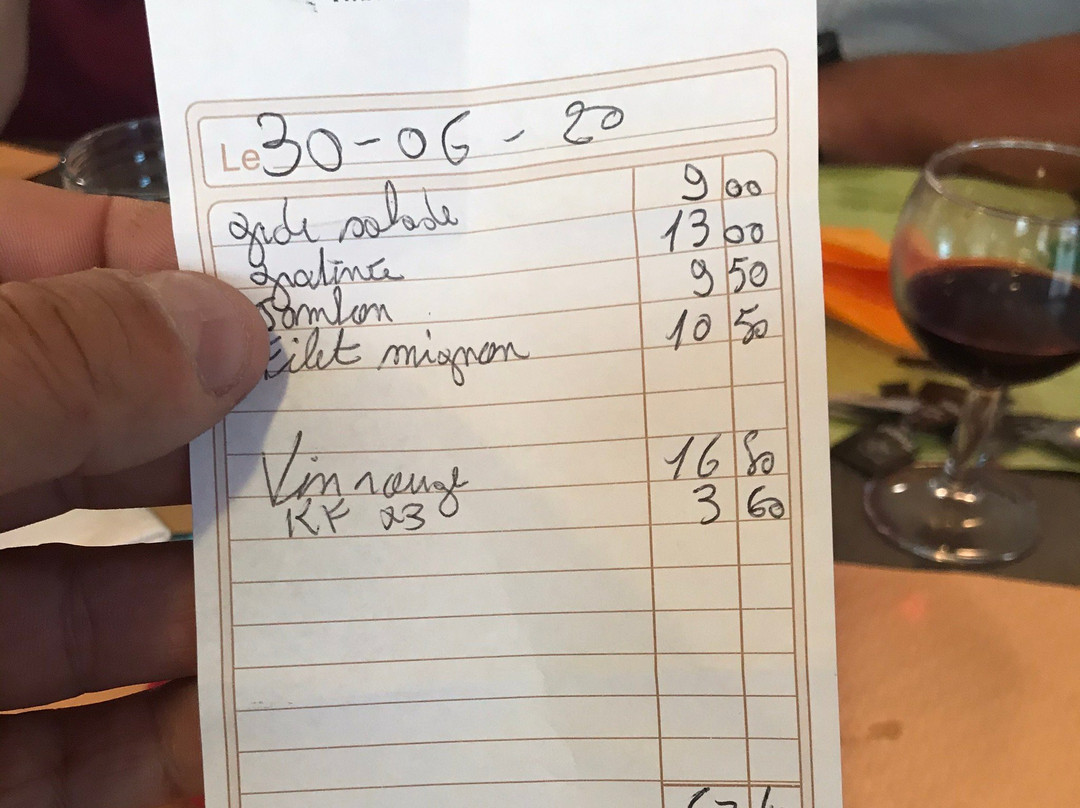 Le 30-06-20
gde salade 9 00
gratinée 13 00
Jambon 9 50
Filet mignon 10 50
Vin rouge 16 80
KF x3 3 60